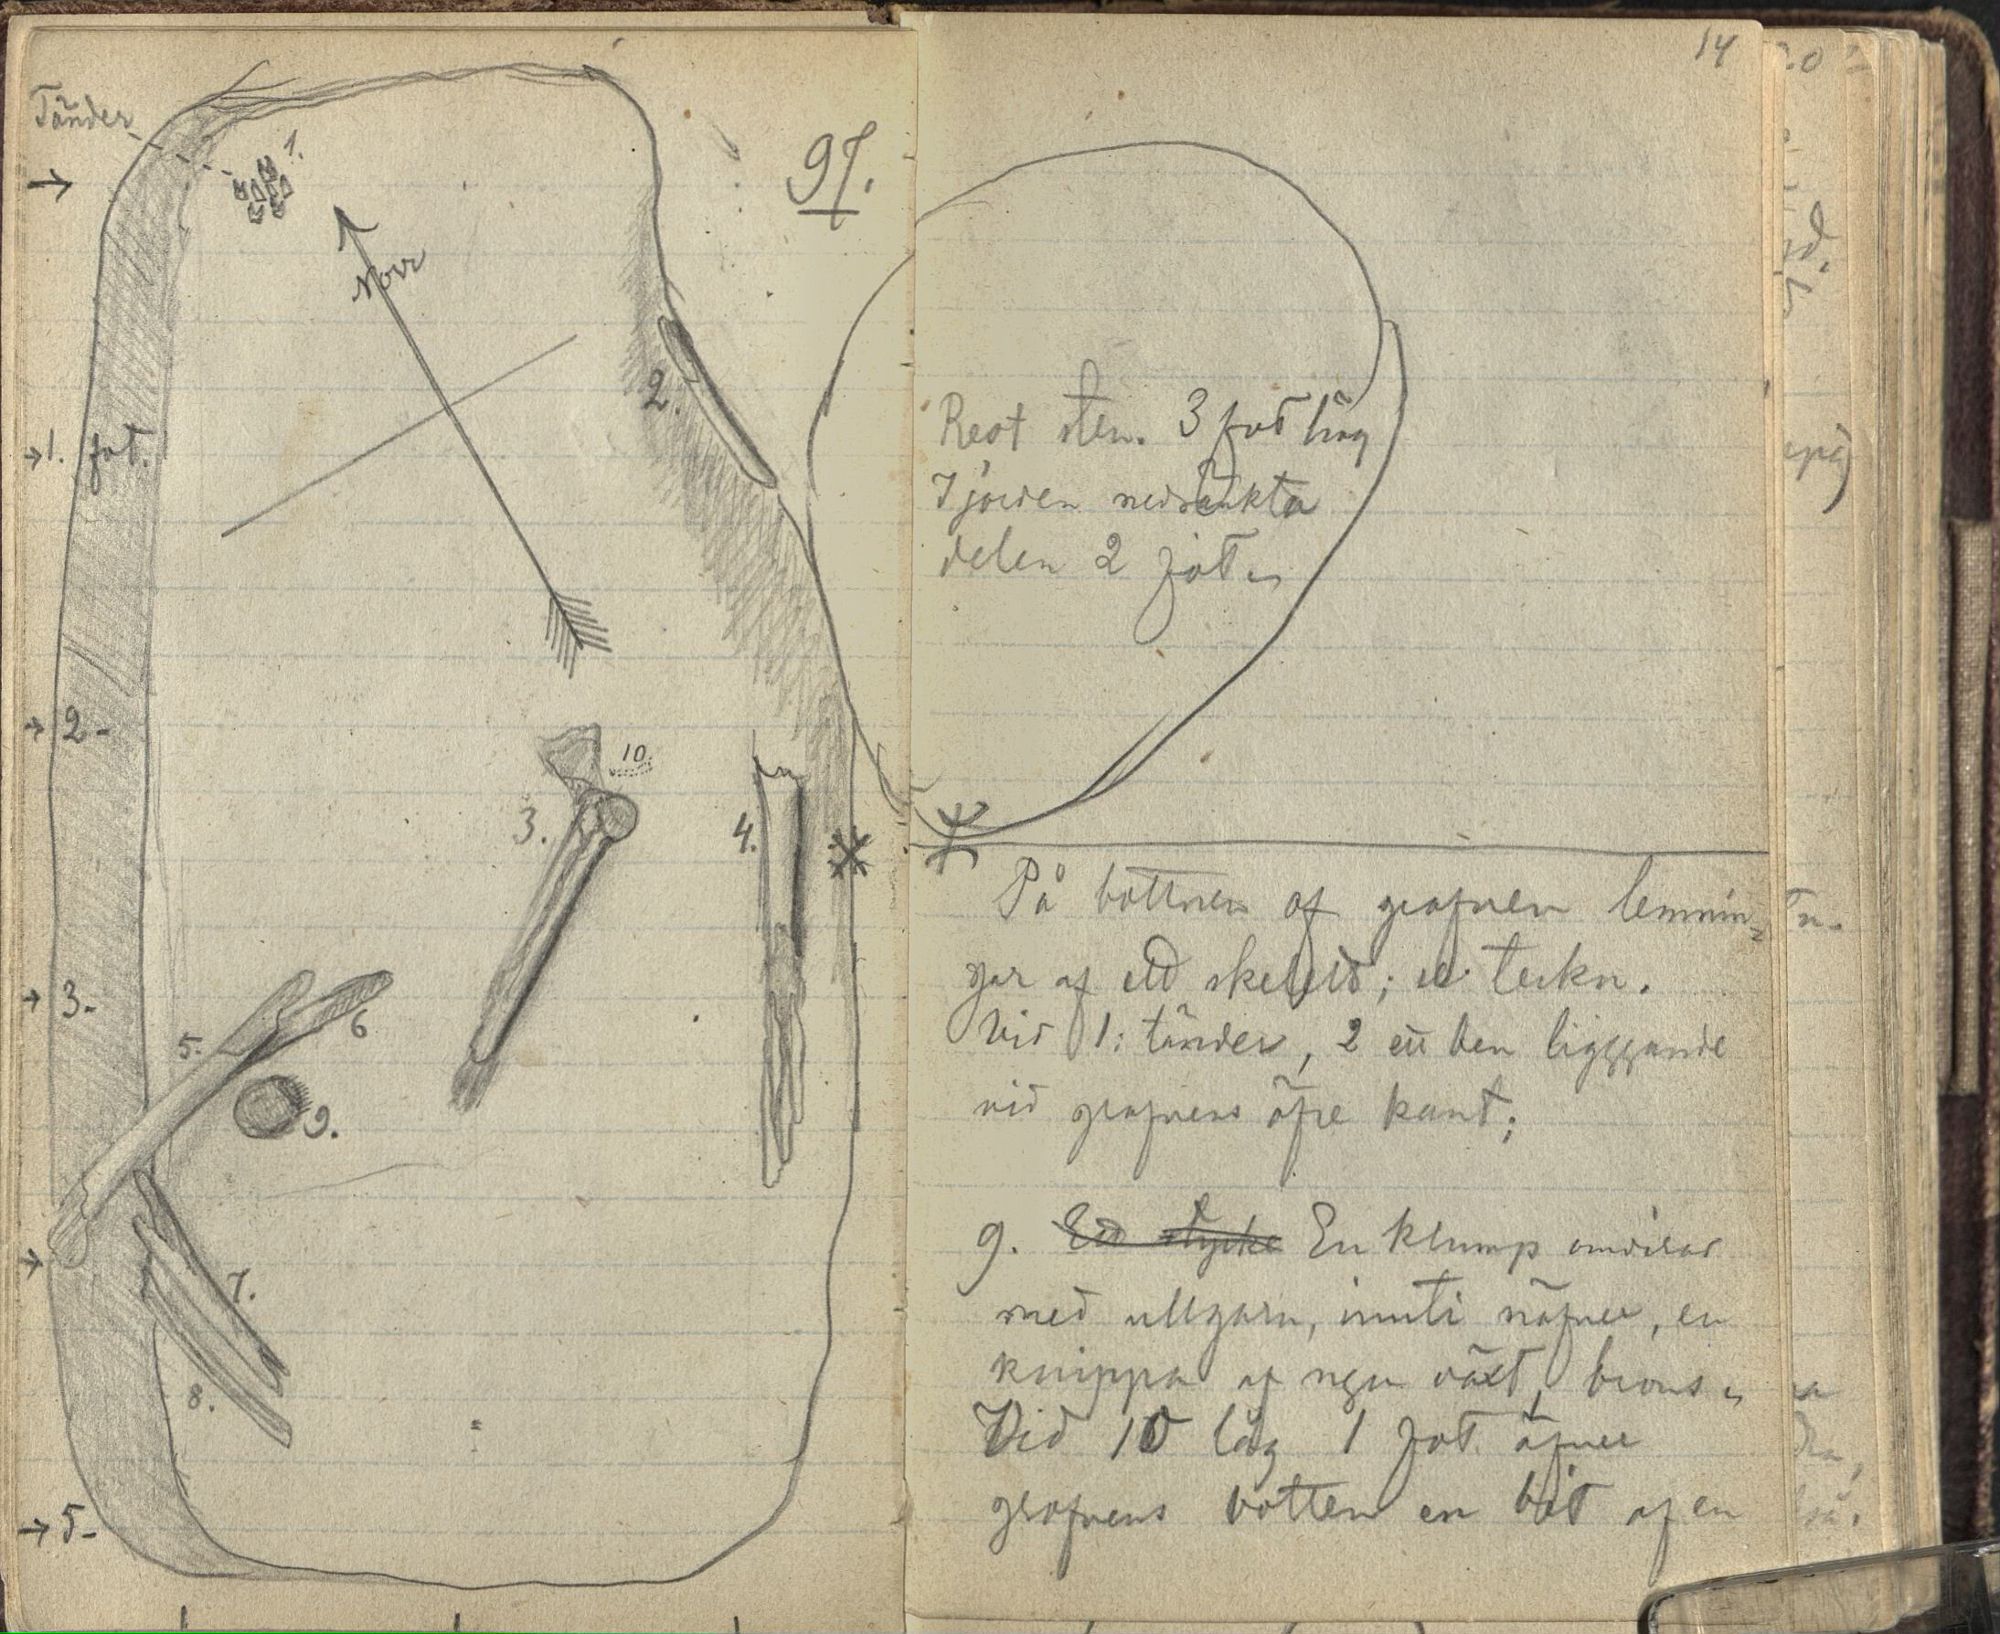 Tänder
1.
Norr
97.
2.
1. fot.
2-
10.
3.
4.
3-
5.
6
9.
7.
8.
5-
14
Rest sten. 3 fot hög
I jorden nedsänkta
delen 2 fot
På bottnen af grafven lemnin-
gar af ett skelett; se teckn.
Vid 1: tänder, 2 ett ben liggande
vid grafvens öfre kant;
9. Ett stycke En klump omvirad
med ullgarn, inuti näfver, en
knippa af ngn växt, brons
Vid 10 låg 1 fot öfver
grafvens botten en bit af en